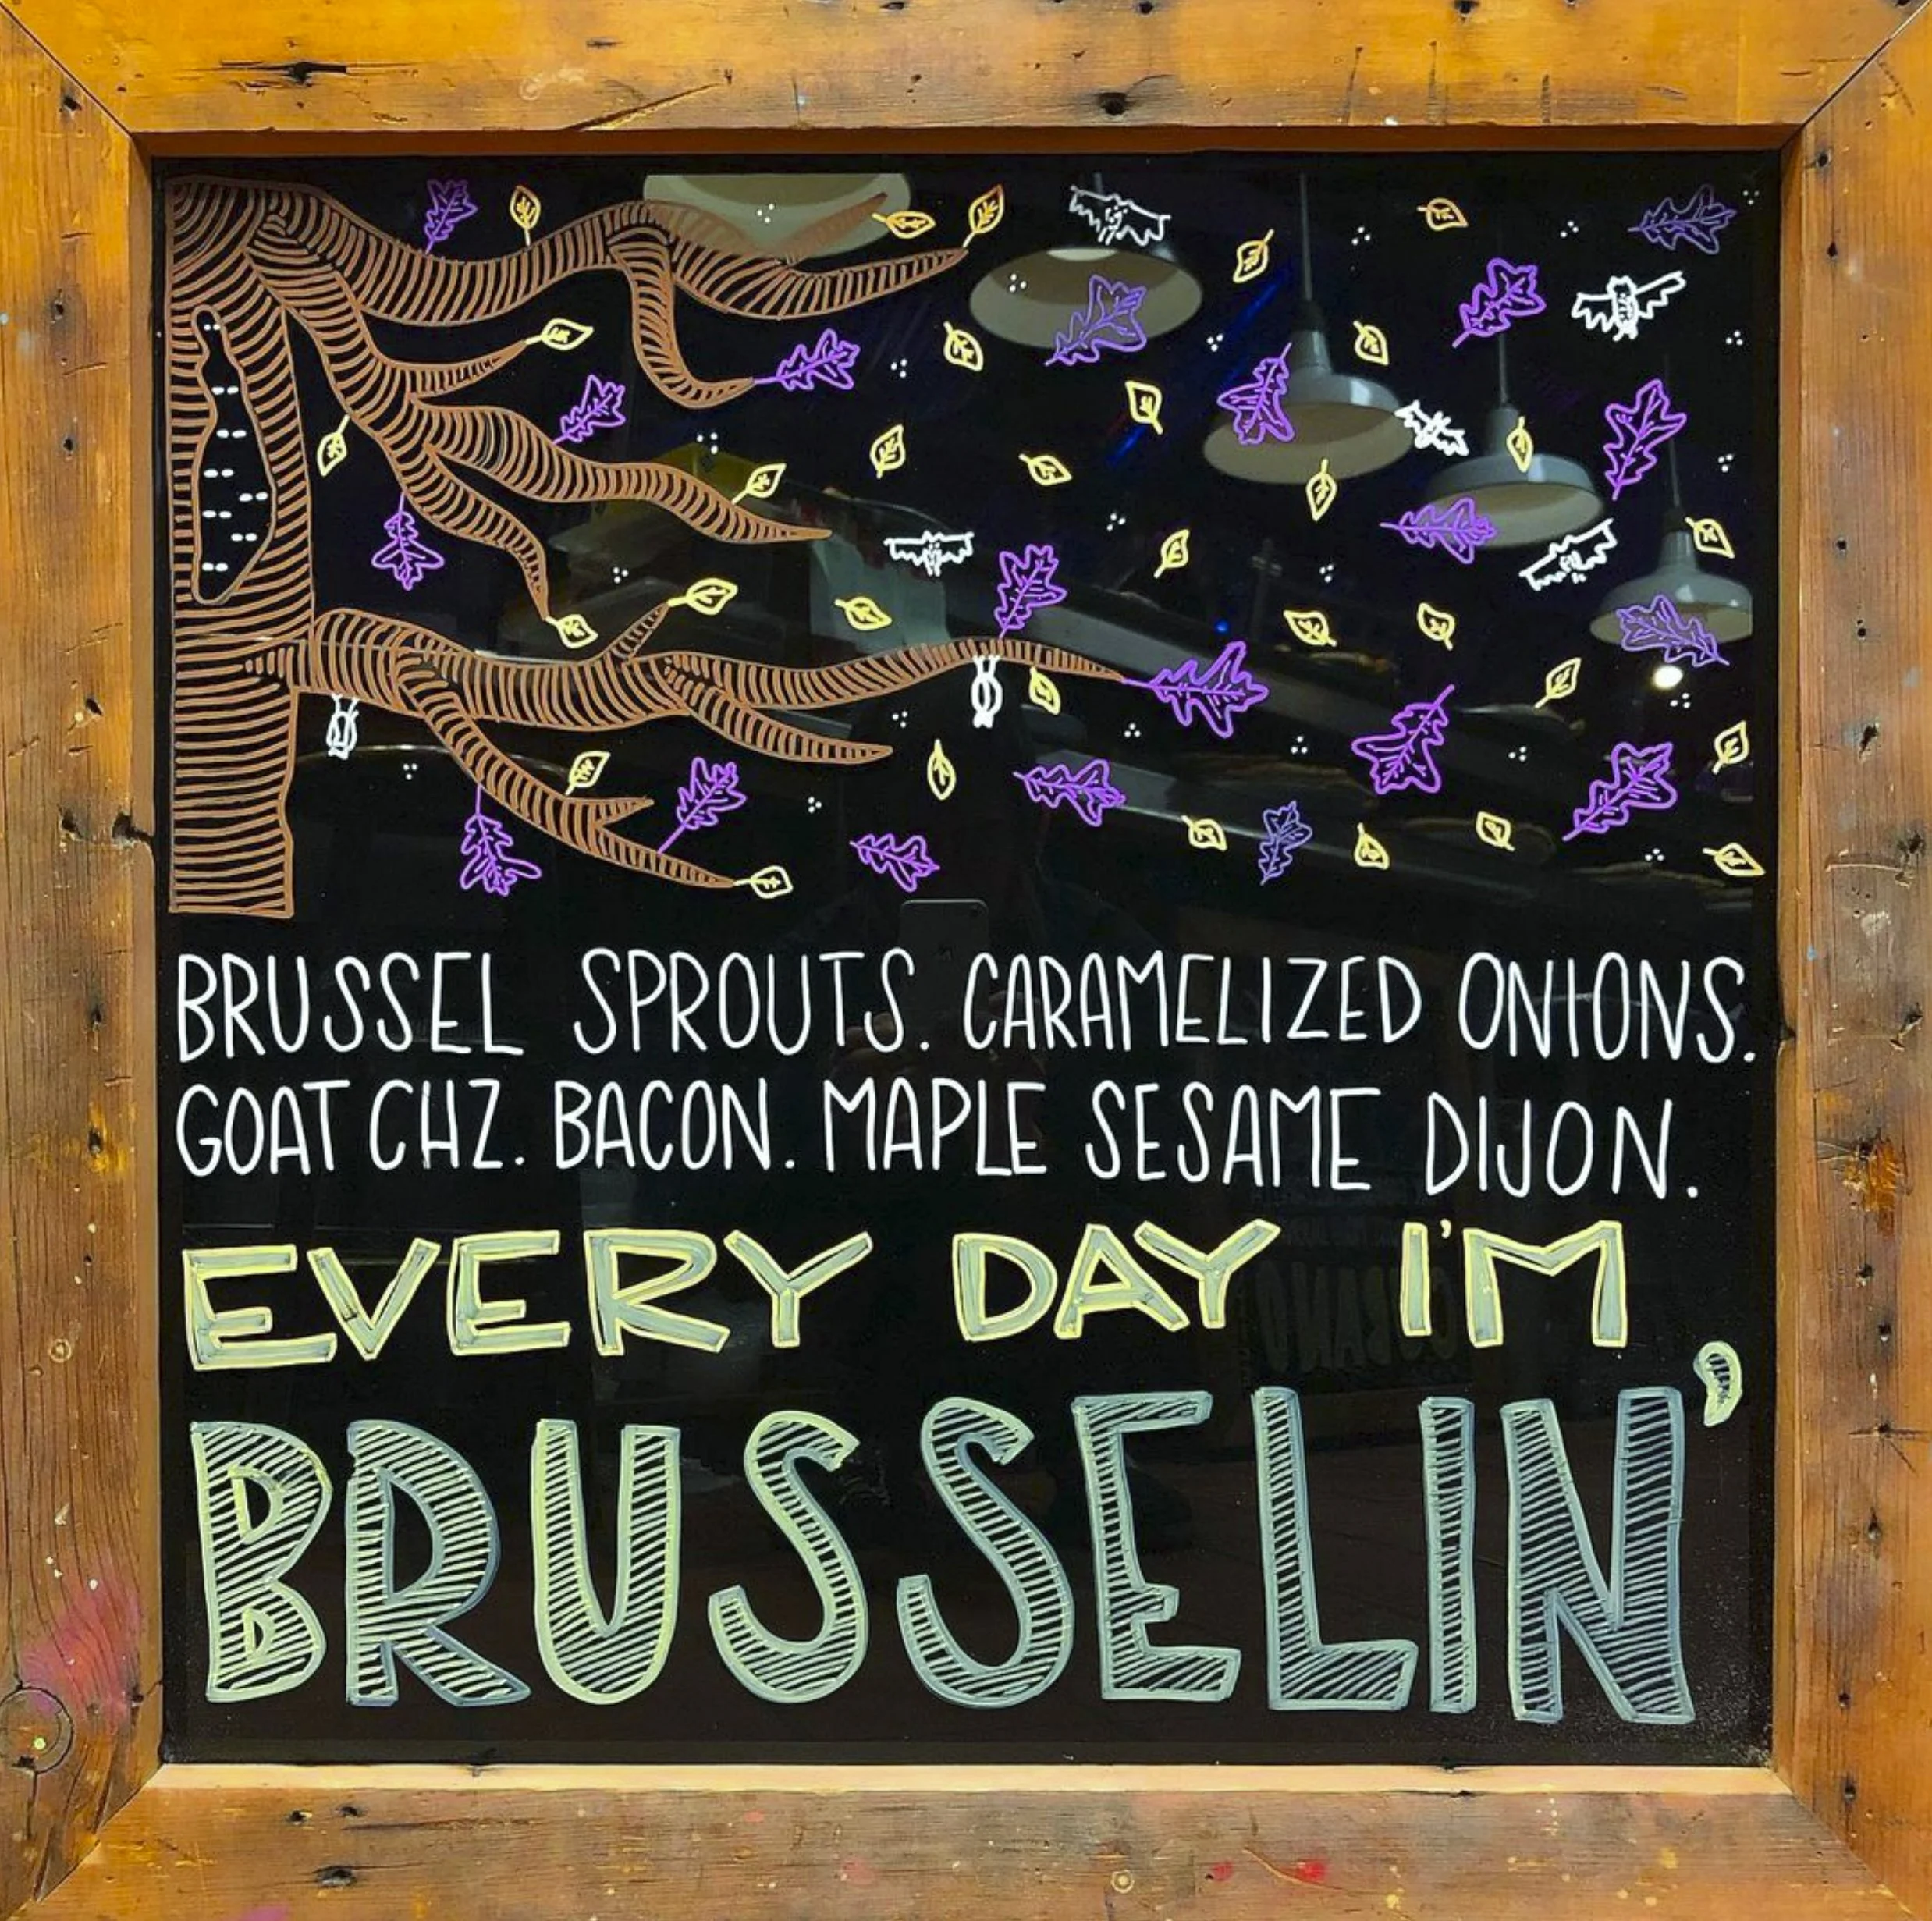 BRUSSEL SPROUTS. CARAMELIZED ONIONS.
GOAT CHZ. BACON. MAPLE SESAME DIJON.
EVERY DAY I'M
BRUSSELIN'